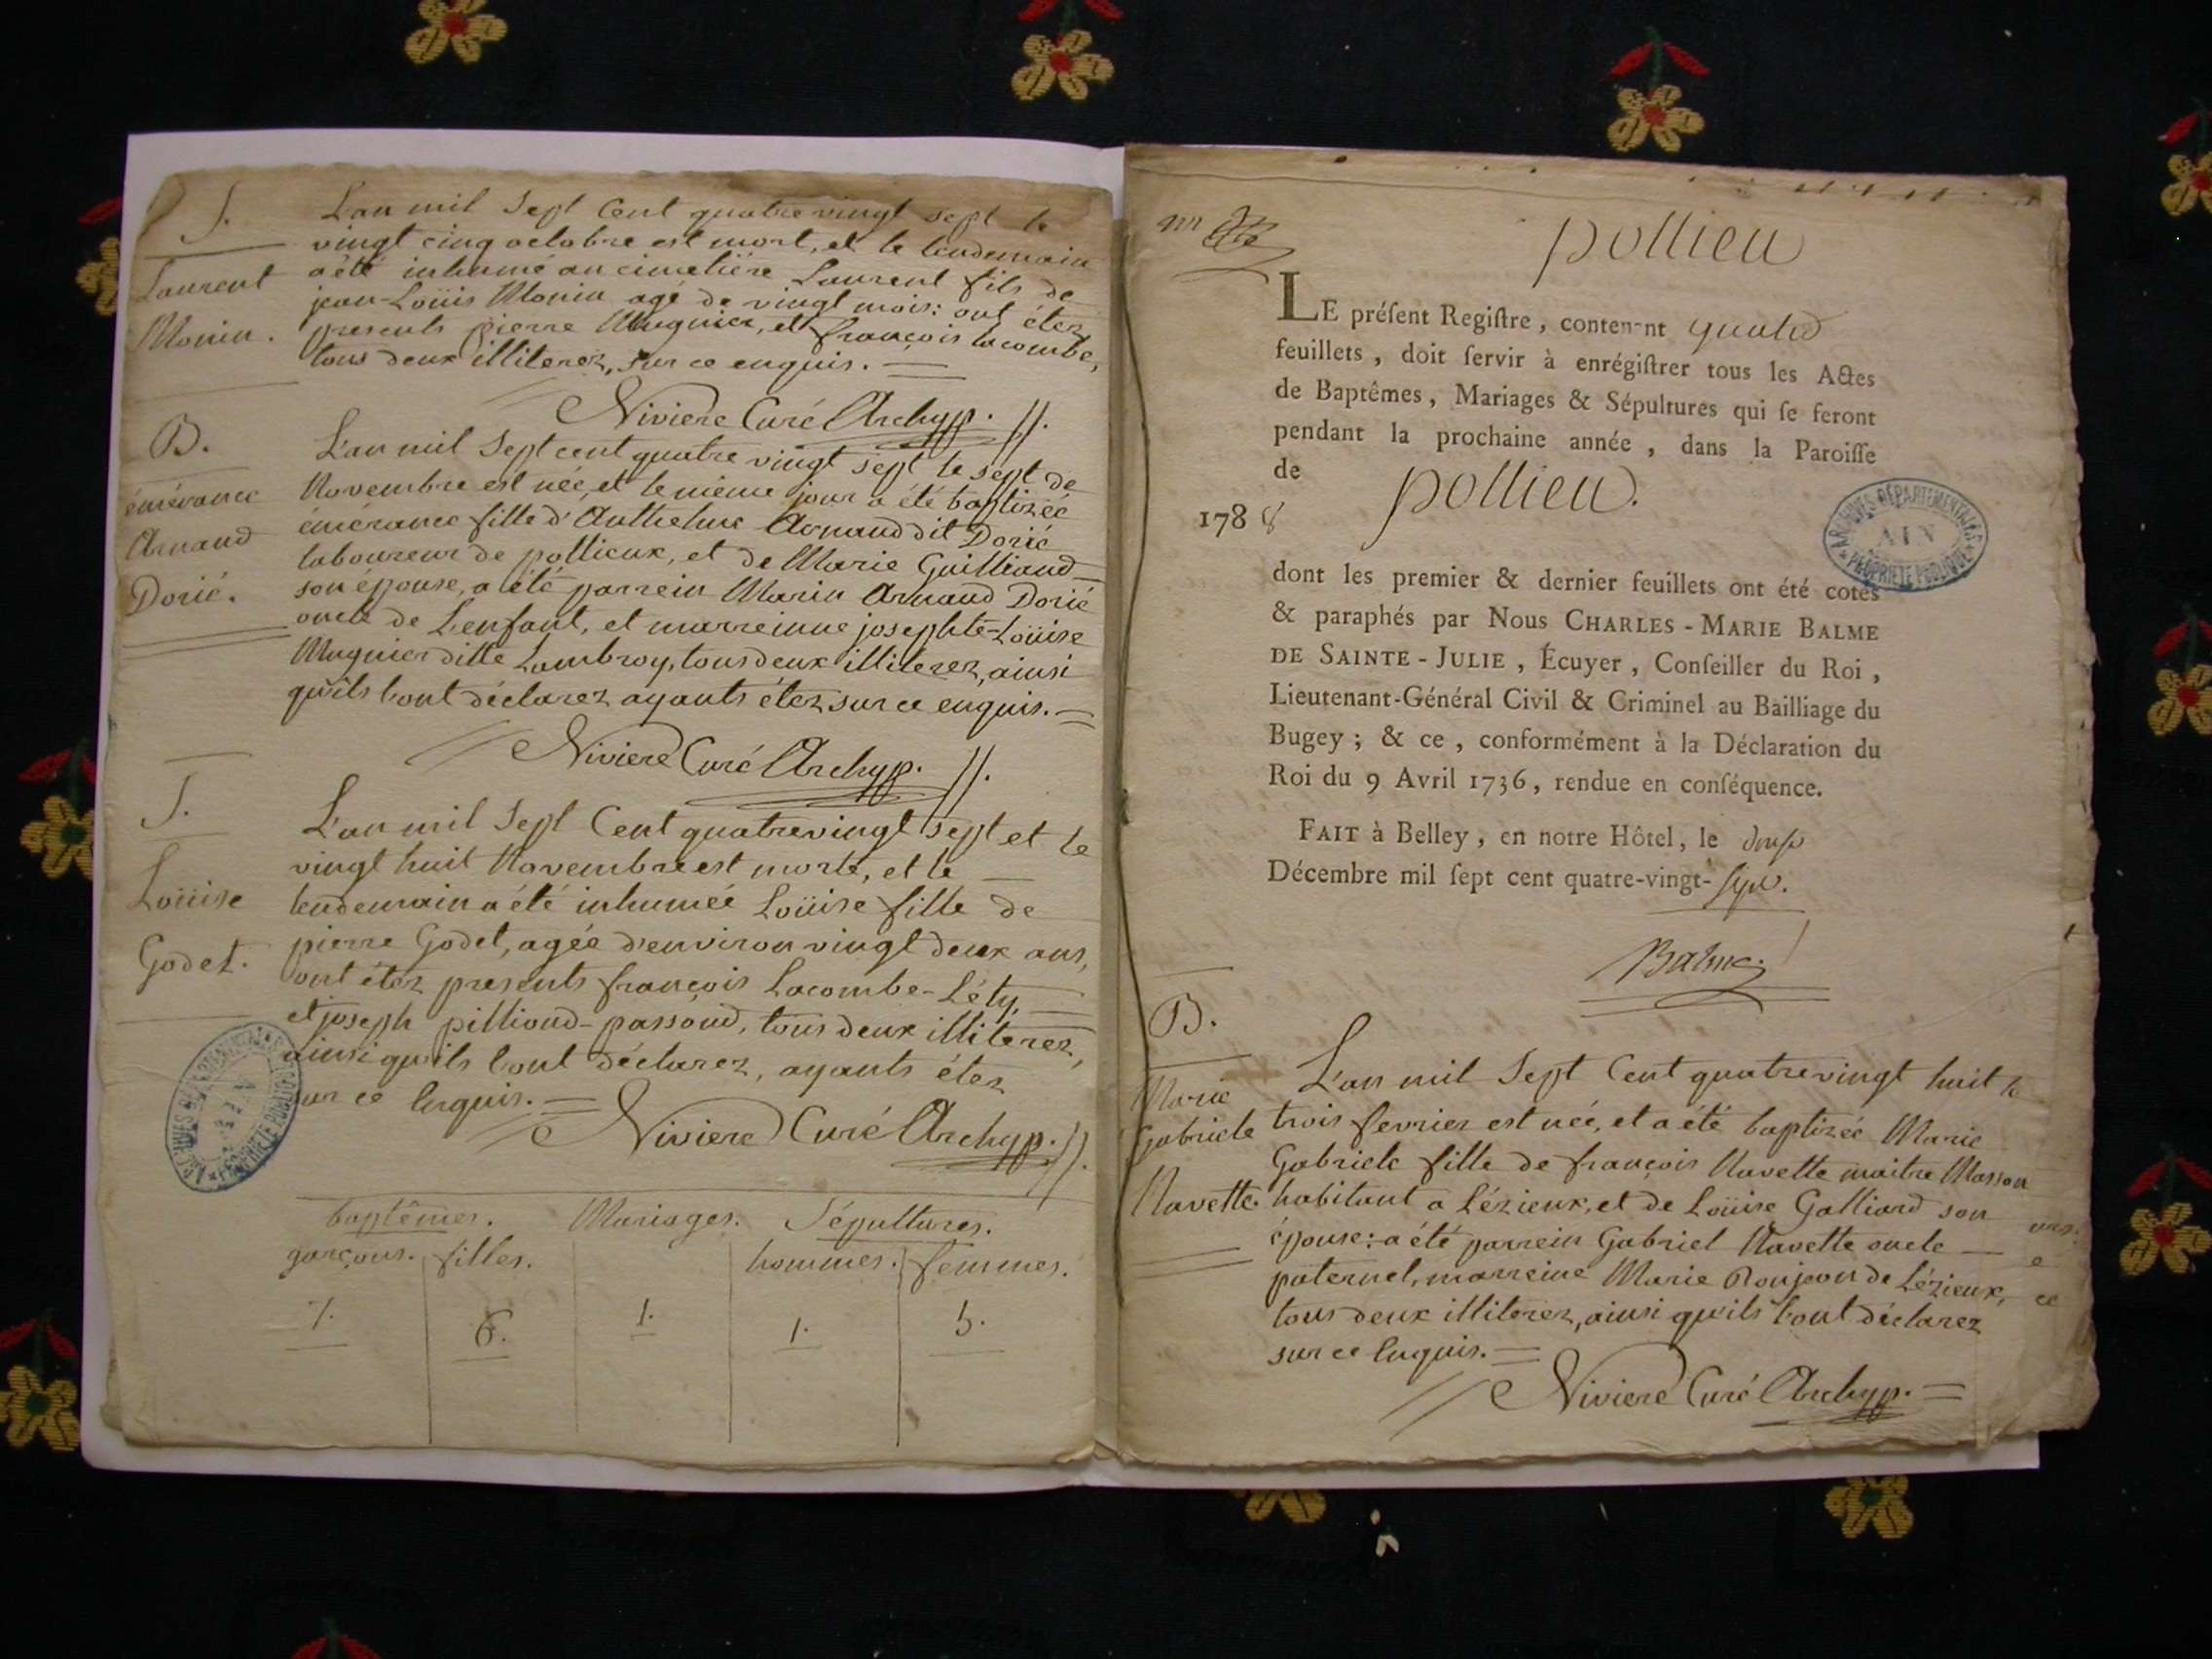 S.
Laurent
Monin.
L'an mil Sept Cent quatre vingt sept le
vingt cinq octobre est mort, et le lendemain
a été inhumé au cimetiére Laurent fils de
jean-Loüis Monin agé de vingt mois: ont étez
presents pierre Mugnier, et françois lacombe,
tous deux illiterez, sur ce enquis.
Niviere Curé Archyp.
B.
émérance
Arnaud
Dorié.
L'an mil Sept cent quatre vingt sept le sept de
Novembre est née, et le même jour a été baptizée
émérance fille d'Anthelme Arnaud dit Dorié
laboureur de pollieux, et de Marie Guilliand
son épouse, a été parrein Marin Arnaud Dorié
oncle de L'enfant, et marreinne josephte-Loüise
Mugnier ditte Lambroy, tous deux illiterez, ainsi
qu'ils l'ont déclarez ayants étez sur ce enquis.
Niviere Curé Archyp.
S.
Loüise
Godet.
L'an mil Sept Cent quatrevingt sept et le
vingt huit Novembre est morte, et le
lendemain a été inhumée Loüise fille de
pierre Godet, agée d'environ vingt deux ans,
ont étez presents françois Lacombe-Léty,
et joseph pilliond-passond, tous deux illiterez,
ainsi qu'ils l'ont déclarez, ayants étez
sur ce Enquis.
Niviere Curé Archyp.
ARCHIVES DÉPARTEMENTALES AIN PROPRIÉTÉ PUBLIQUE
baptêmes. Mariages. Sépultures.
garçons. filles. hommes. femmes.
7. 6. 1. 1. 5.
pollieu
LE préſent Regiſtre, contenant quatre
feuillets, doit ſervir à enrégiſtrer tous les Actes
de Baptêmes, Mariages & Sépultures qui ſe feront
pendant la prochaine année, dans la Paroiſſe
de pollieu.
1788
ARCHIVES DÉPARTEMENTALES AIN PROPRIÉTÉ PUBLIQUE
dont les premier & dernier feuillets ont été cotés
& paraphés par Nous CHARLES-MARIE BALME
DE SAINTE-JULIE, Écuyer, Conſeiller du Roi,
Lieutenant-Général Civil & Criminel au Bailliage du
Bugey; & ce, conformément à la Déclaration du
Roi du 9 Avril 1736, rendue en conſéquence.
FAIT à Belley, en notre Hôtel, le
Décembre mil ſept cent quatre-vingt-sept.
Balme
B.
Marie
Gabriele
Navette.
L'an mil Sept Cent quatrevingt huit le
trois fevrier est née, et a été baptizée Marie
Gabriele fille de françois Navette maitre Masson
habitant a Lézieux, et de Loüise Galliard son
épouse: a été parrein Gabriel Navette oncle
paternel, marreine Marie Roujeon de Lézieux,
tous deux illiterez, ainsi qu'ils l'ont déclarez
sur ce Enquis.
Niviere Curé Archyp.